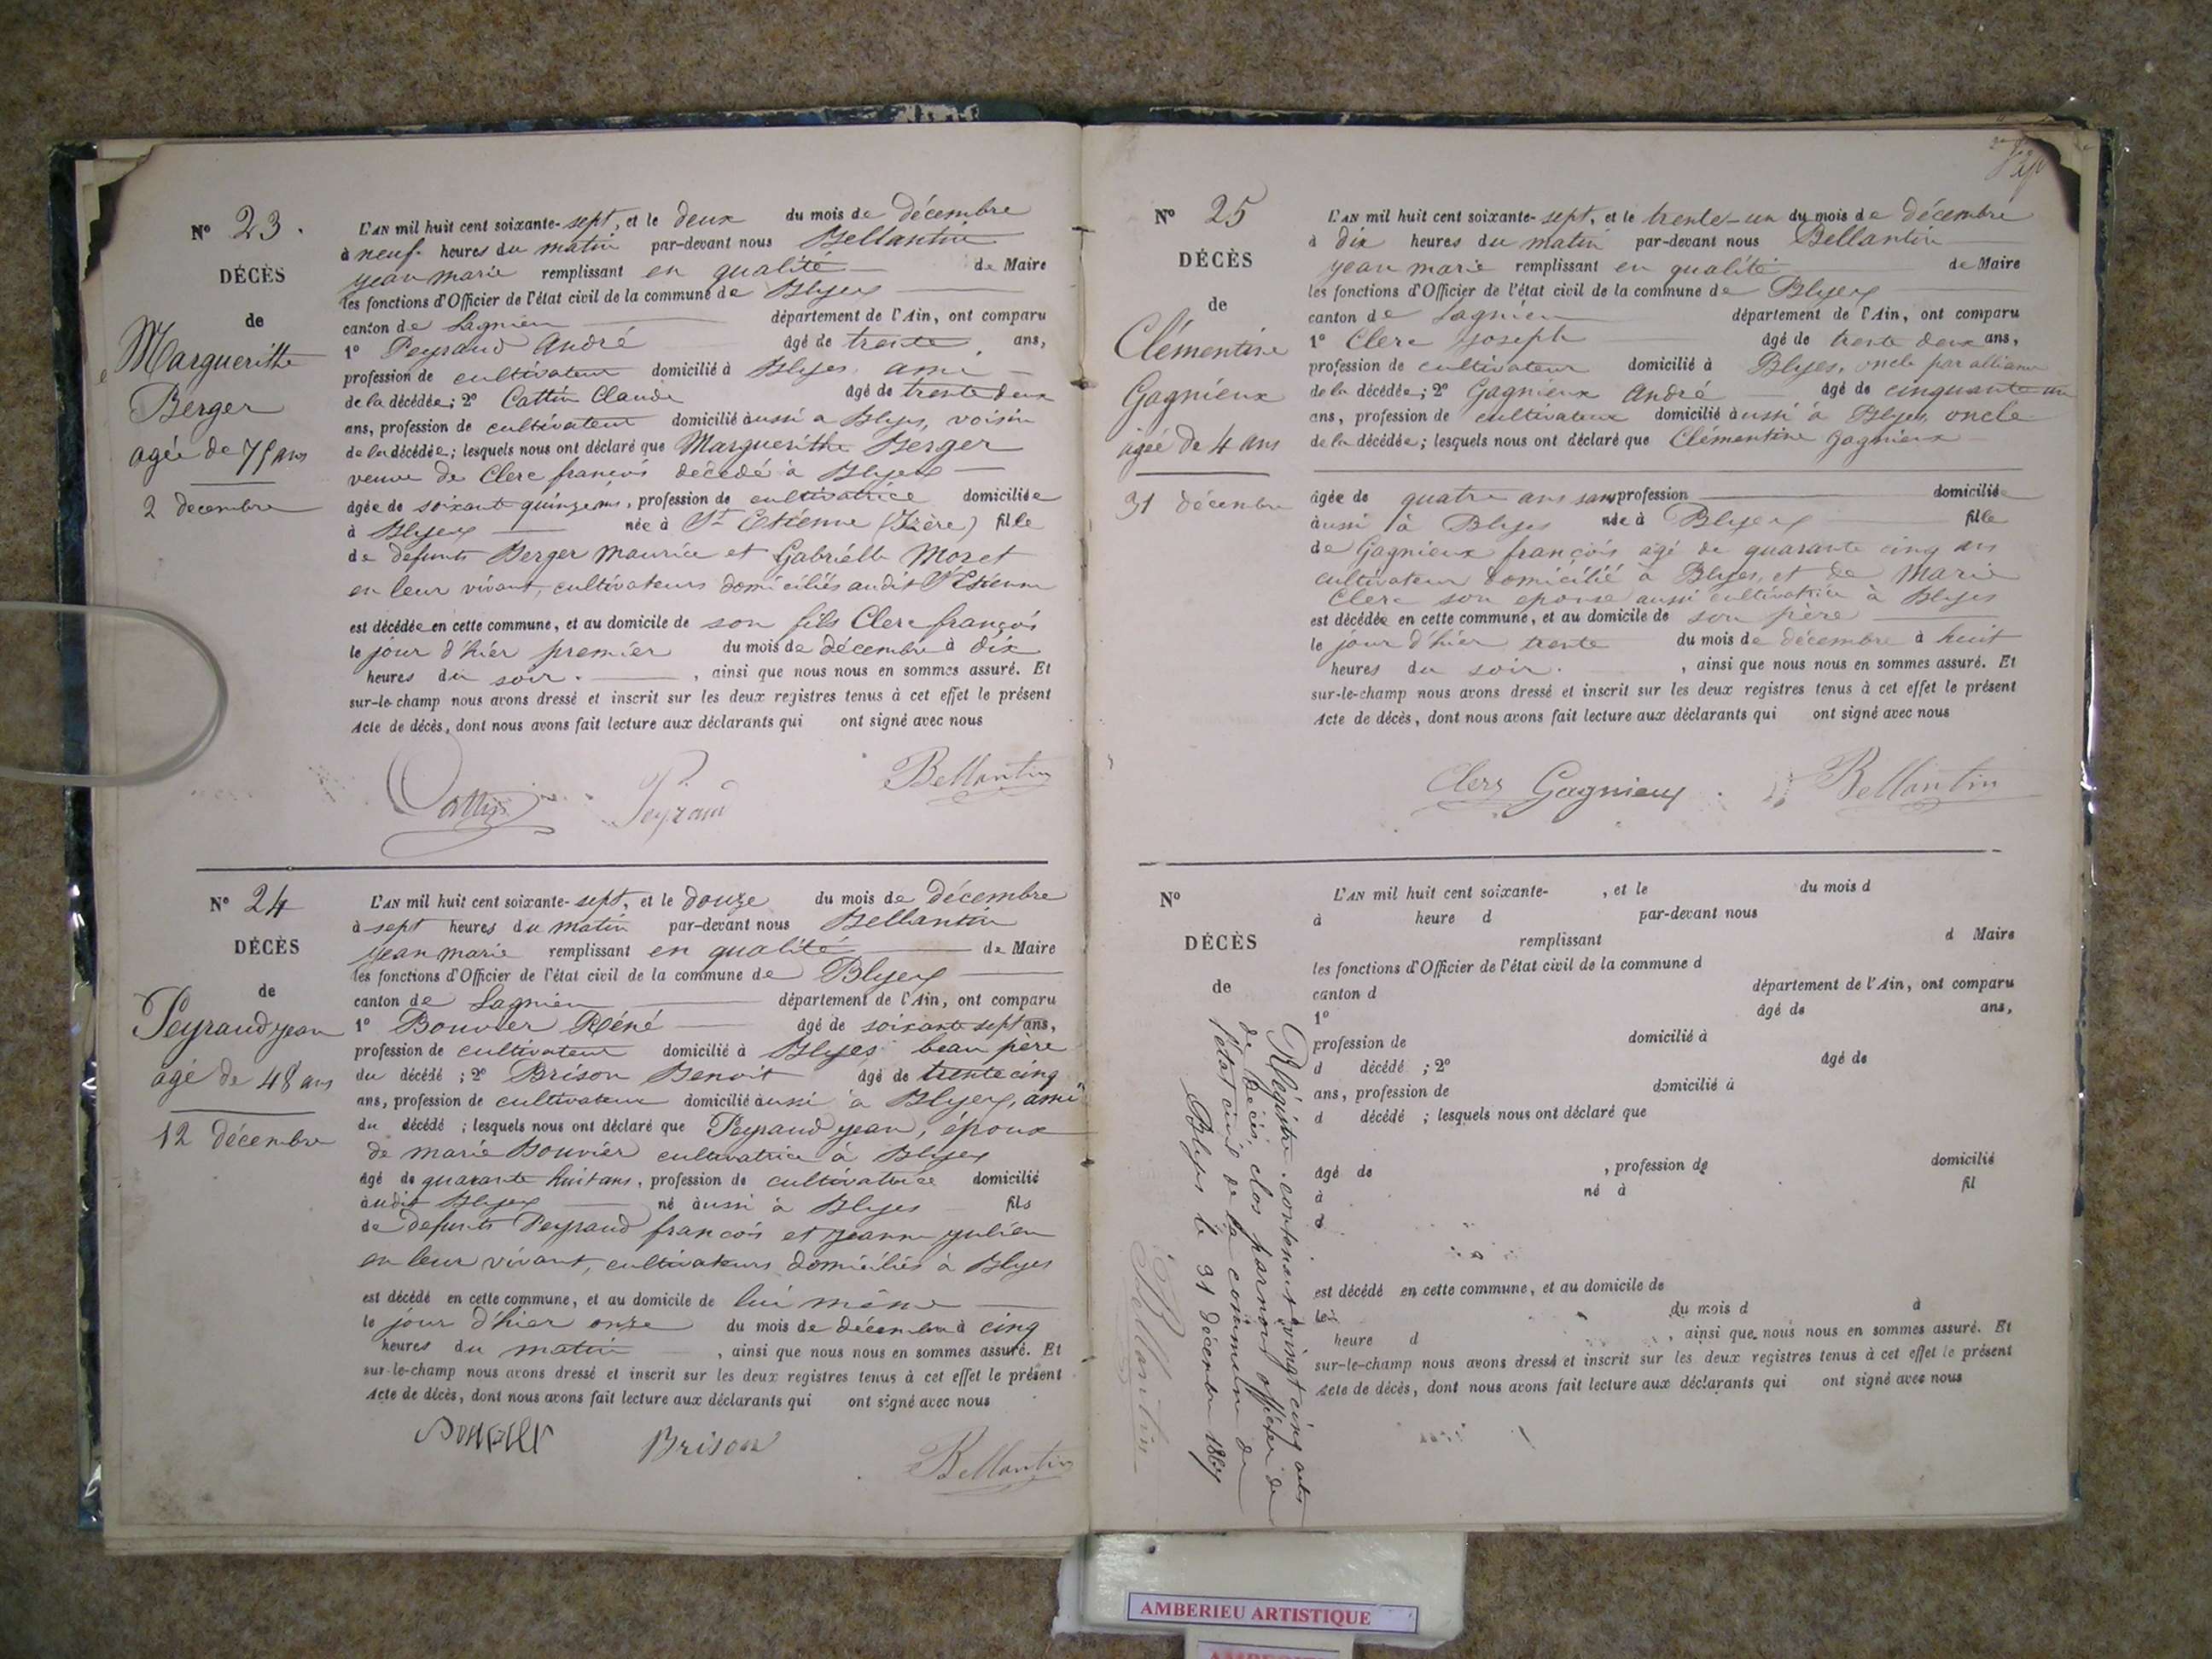 N° 23.
DÉCÈS
de
Margueritte
Berger
agée de 75 ans
2 decembre
L'AN mil huit cent soixante-sept, et le deux du mois de décembre
à neuf heures du matin par-devant nous Bellantin
jean marie remplissant en qualité de Maire
les fonctions d'Officier de l'état civil de la commune de Blyes
canton de Lagnieu département de l'Ain, ont comparu
1° Peyraud André âgé de trente ans,
profession de cultivateur domicilié à Blyes ami
de la décédée; 2° Cattin Claude âgé de trente deux
ans, profession de cultivateur domicilié aussi a Blyes, voisin
de la décédée; lesquels nous ont déclaré que Marguerithe Berger
veuve de Clerc françois décédé à Blyes
âgée de soixante quinze ans, profession de cultivatrice domiciliée
à Blyes née à St Etienne (Isère) fille
de defunts Berger maurice et Gabriélle Moret
en leur vivant, cultivateurs domiciliés audit St Etienne
est décédée en cette commune, et au domicile de son fils Clerc françois
le jour d'hier premier du mois de décembre à dix
heures du soir. , ainsi que nous nous en sommes assuré. Et
sur-le-champ nous avons dressé et inscrit sur les deux registres tenus à cet effet le présent
Acte de décès, dont nous avons fait lecture aux déclarants qui ont signé avec nous
Cattin Peyraud Bellantin
N° 24
DÉCÈS
de
Peyraud jean
agé de 48 ans
12 décembre
L'AN mil huit cent soixante-sept, et le douze du mois de décembre
à sept heures du matin par-devant nous Bellantin
jean marie remplissant en qualité de Maire
les fonctions d'Officier de l'état civil de la commune de Blyes
canton de Lagnieu département de l'Ain, ont comparu
1° Bouvier Réné âgé de soixante sept ans,
profession de cultivateur domicilié à Blyes beau père
du décédé ; 2° Brison Benoit âgé de trente cinq
ans, profession de cultivateur domicilié aussi à Blyes, ami
du décédé ; lesquels nous ont déclaré que Peyraud jean, époux
de marie Bouvier cultivatrice à Blyes
âgé de quarante huit ans, profession de cultivatrice domicilié
audit Blyes né aussi à Blyes fils
de defunts Peyraud françois et jeanne julien
en leur vivant, cultivateurs domiciliés à Blyes
est décédé en cette commune, et au domicile de lui même
le jour d'hier onze du mois de décembre à cinq
heures du matin , ainsi que nous nous en sommes assuré. Et
sur-le-champ nous avons dressé et inscrit sur les deux registres tenus à cet effet le présent
Acte de décès, dont nous avons fait lecture aux déclarants qui ont signé avec nous
Brison
Bellantin
N° 25
DÉCÈS
de
Clémentine
Gagnieux
agée de 4 ans
31 décembre
L'AN mil huit cent soixante-sept, et le trente-un du mois de décembre
à dix heures du matin par-devant nous Bellantin
jean marie remplissant en qualité de Maire
les fonctions d'Officier de l'état civil de la commune de Blyes
canton de Lagnieu département de l'Ain, ont comparu
1° Clerc joseph âgé de trente deux ans,
profession de cultivateur domicilié à Blyes, oncle par alliance
de la décédée; 2° Gagnieux André âgé de cinquante un
ans, profession de cultivateur domicilié aussi à Blyes, oncle
de la décédée; lesquels nous ont déclaré que Clémentine Gagnieux
âgée de quatre ans sans profession domiciliée
aussi à Blyes née à Blyes fille
de Gagnieux françois agé de quarante cinq ans
cultivateur domicilié à Blyes, et de Marie
Clerc son epouse aussi cultivatrice à Blyes
est décédée en cette commune, et au domicile de son père
le jour d'hier trente du mois de décembre à huit
heures du soir. , ainsi que nous nous en sommes assuré. Et
sur-le-champ nous avons dressé et inscrit sur les deux registres tenus à cet effet le présent
Acte de décès, dont nous avons fait lecture aux déclarants qui ont signé avec nous
Clerc Gagnieux Bellantin
N°
DÉCÈS
de
L'AN mil huit cent soixante- , et le du mois d
à heure d par-devant nous
remplissant d Maire
les fonctions d'Officier de l'état civil de la commune d
canton d département de l'Ain, ont comparu
1° âgé de ans,
profession de domicilié à
d décédé ; 2° âgé de
ans, profession de domicilié à
d décédé ; lesquels nous ont déclaré que
âgé de , profession de domicilié
à né à fil
d
est décédé en cette commune, et au domicile de
le du mois d à
heure d , ainsi que nous nous en sommes assuré. Et
sur-le-champ nous avons dressé et inscrit sur les deux registres tenus à cet effet le présent
Acte de décès, dont nous avons fait lecture aux déclarants qui ont signé avec nous
Régistre contenant vingt cinq actes
de décès, clos par nous officier de
l'état civil de la commune de
Blyes le 31 décembre 1867
Bellantin
AMBERIEU ARTISTIQUE